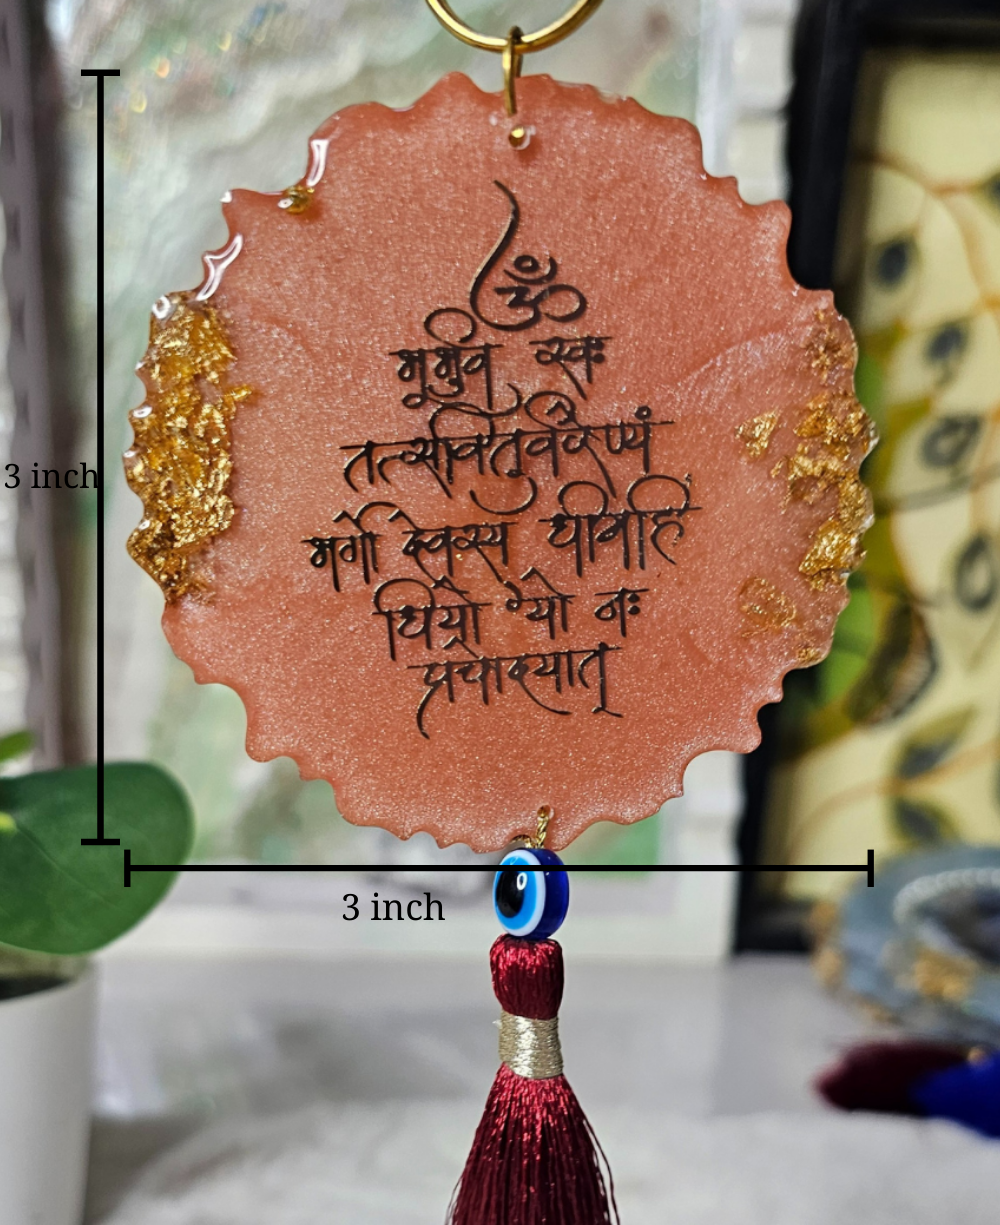 ॐ
भूर्भुव स्वः
तत्सवितुर्वरेण्यं
भर्गो देवस्य धीमहि
धियो यो नः
प्रचोदयात्
3 inch
3 inch